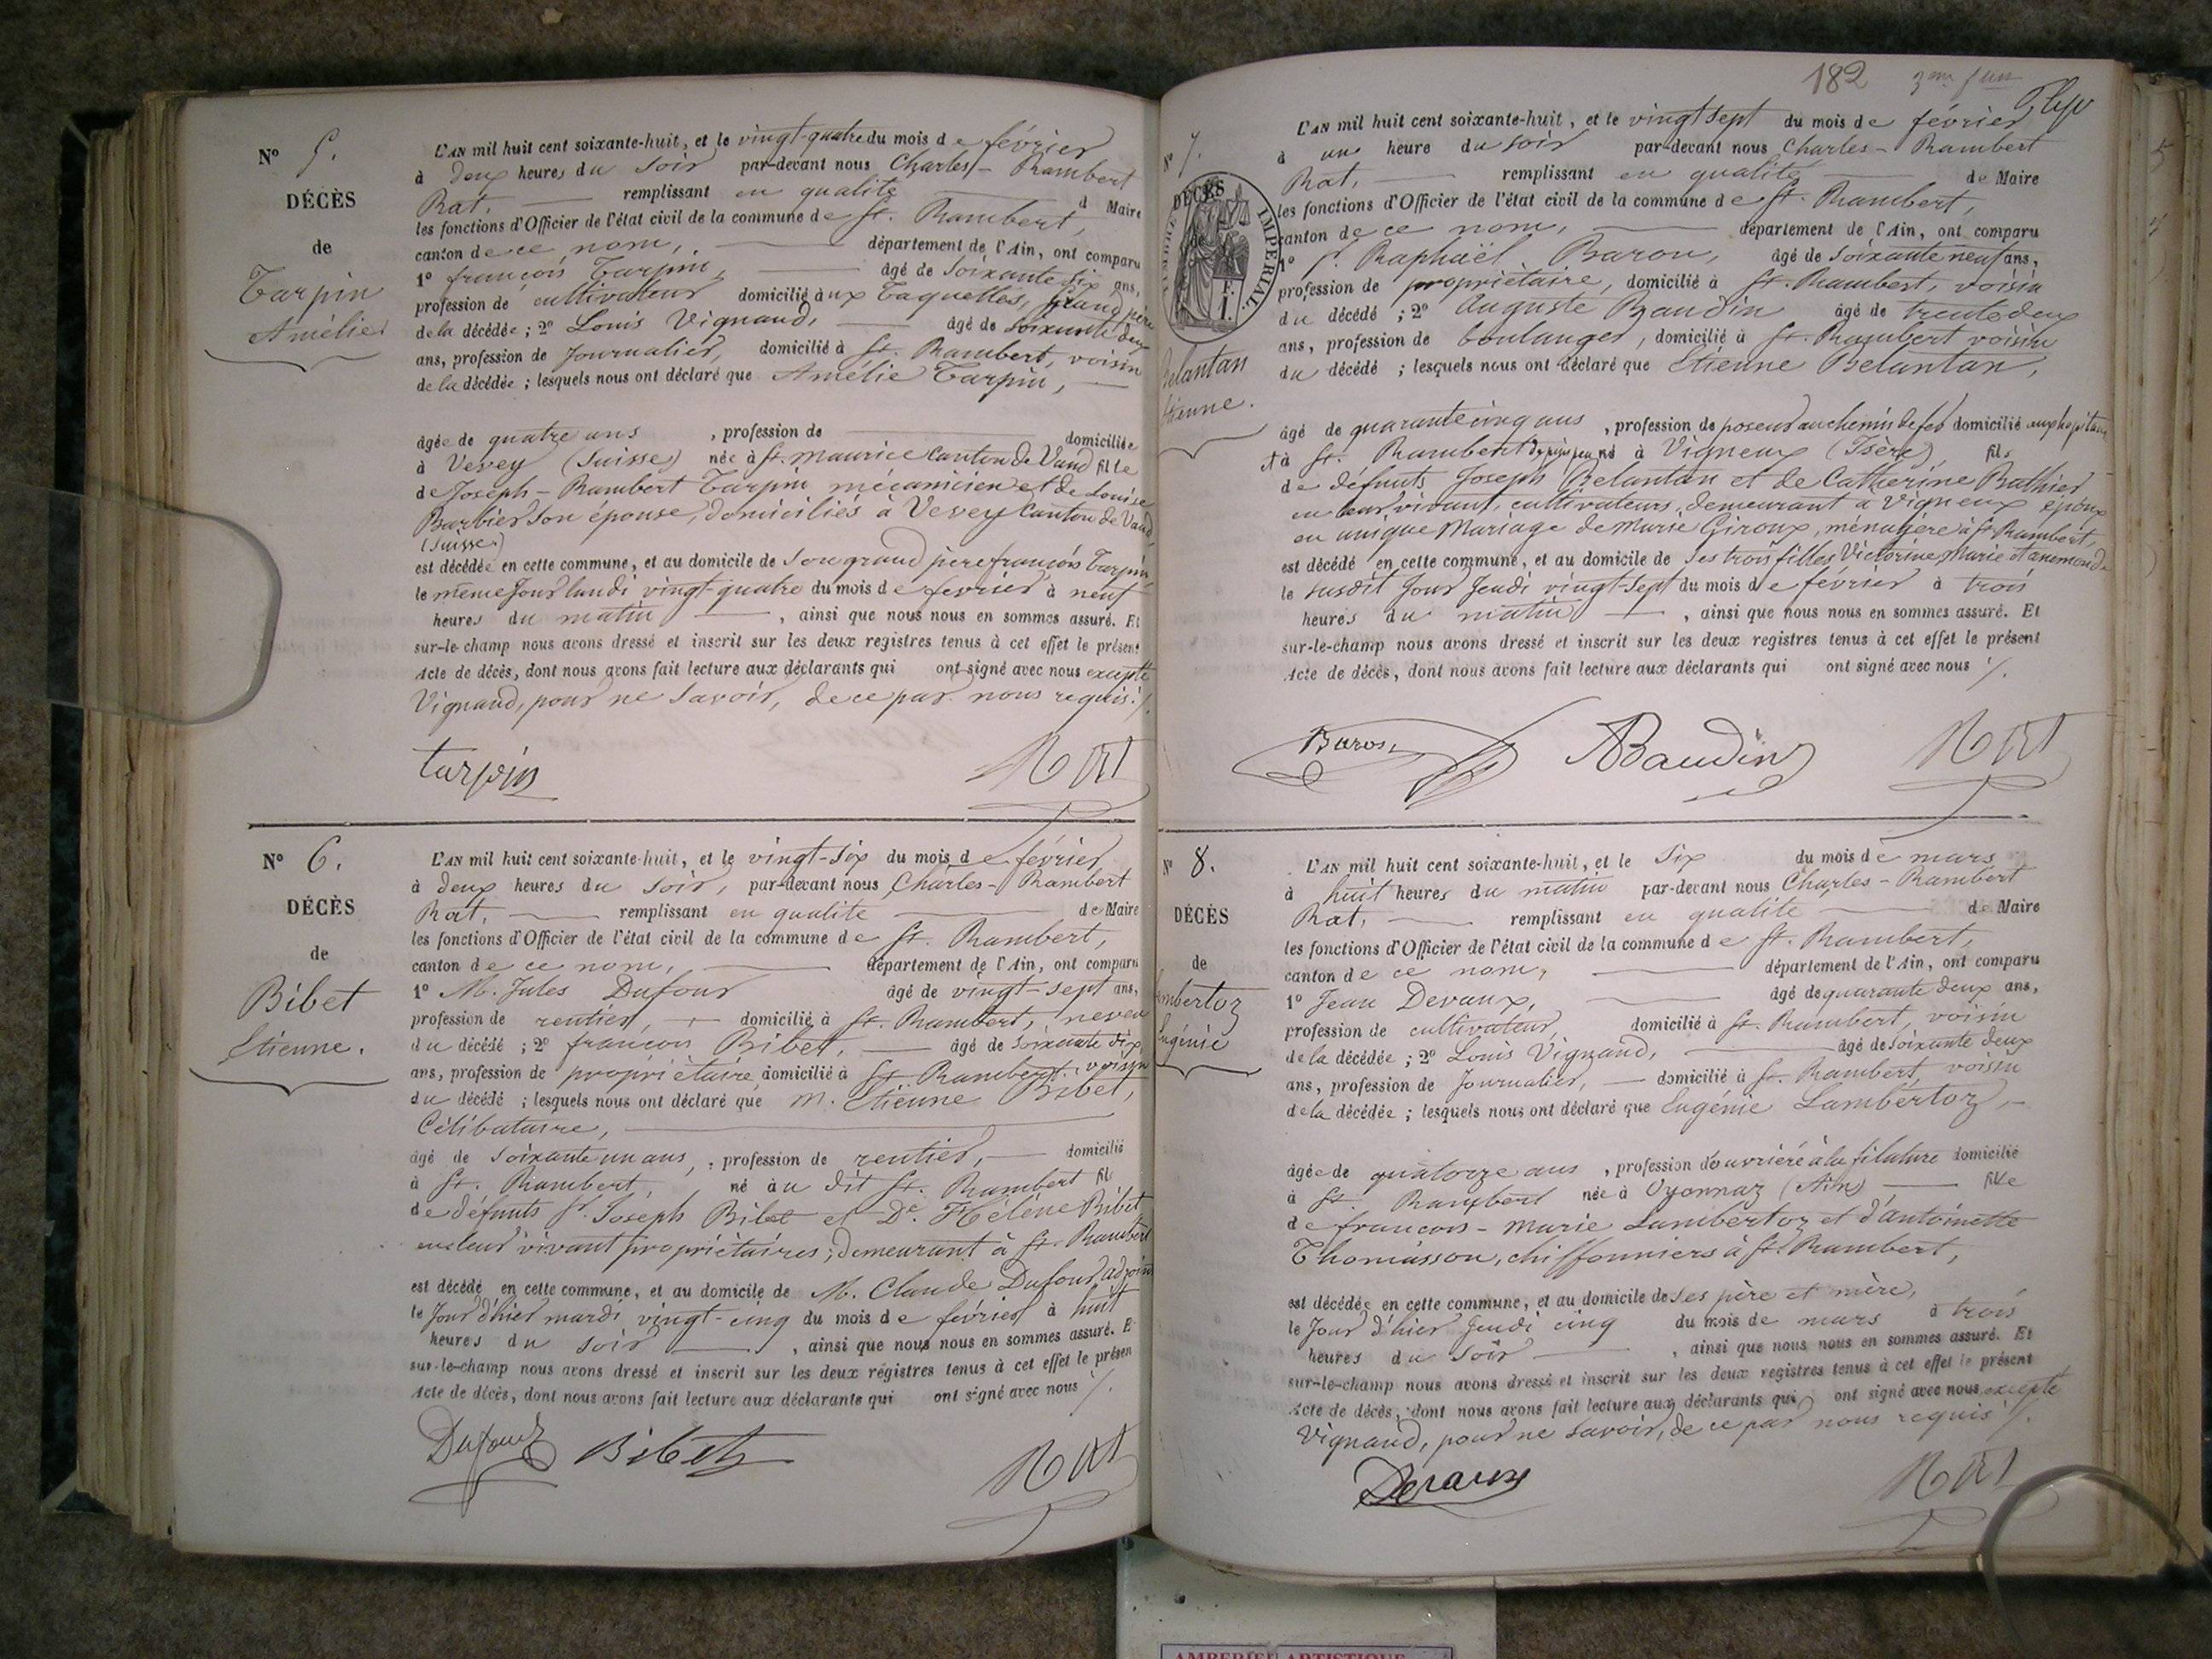 Nº 5.
DÉCÈS
de
Tarpin
Amélie
L'AN mil huit cent soixante-huit, et le vingt-quatre du mois de février
à deux heures du soir par-devant nous Charles-Rambert
Rat, remplissant en qualité d Maire
les fonctions d'Officier de l'état civil de la commune de St. Rambert,
canton de ce nom, département de l'Ain, ont comparu
1º françois Tarpin, âgé de soixante six ans,
profession de cultivateur domicilié aux Taquelles, grand père
de la décédée ; 2º Louis Vignaud, âgé de soixante deux
ans, profession de Journalier, domicilié à St. Rambert, voisin
de la décédée ; lesquels nous ont déclaré que Amélie Tarpin,
âgée de quatre ans , profession de domiciliée
à Vevey (Suisse) née à St. Maurice Canton de Vaud fille
de Joseph-Rambert Tarpin mécanicien et de Louise
Barbier son épouse, domiciliés à Vevey Canton de Vaud
(Suisse)
est décédée en cette commune, et au domicile de son grand père françois Tarpin
le même jour lundi vingt-quatre du mois de fevrier à neuf
heures du matin , ainsi que nous nous en sommes assuré. Et
sur-le-champ nous avons dressé et inscrit sur les deux registres tenus à cet effet le présent
Acte de décès, dont nous avons fait lecture aux déclarants qui ont signé avec nous excepté
Vignaud, pour ne savoir, de ce par nous requis ./.
tarpin Rat
Nº 6.
DÉCÈS
de
Bibet
Etienne.
L'AN mil huit cent soixante-huit, et le vingt-six du mois de février
à deux heures du soir, par-devant nous Charles-Rambert
Rat, remplissant en qualité de Maire
les fonctions d'Officier de l'état civil de la commune de St. Rambert,
canton de ce nom, département de l'Ain, ont comparu
1º M. Jules Dufour âgé de vingt-sept ans,
profession de rentier, domicilié à St. Rambert, neveu
du décédé ; 2º françois Bibet, âgé de soixante dix
ans, profession de propriétaire domicilié à St. Rambert, voisin
du décédé ; lesquels nous ont déclaré que M. Etienne Bibet,
Célibataire,
âgé de soixante un ans , profession de rentier, domicilié
à St. Rambert, né au dit St. Rambert fils
de défunts Sr. Joseph Bibet et De. Hélène Bibet
en leur vivant propriétaires, demeurant à St. Rambert
est décédé en cette commune, et au domicile de M. Claude Dufour adjoint
le jour d'hier mardi vingt-cinq du mois de février à huit
heures du soir , ainsi que nous nous en sommes assuré. E
sur-le-champ nous avons dressé et inscrit sur les deux régistres tenus à cet effet le présen
Acte de décès, dont nous avons fait lecture aux déclarants qui ont signé avec nous ./.
Dufour Bibet Rat
182
Nº 7.
DÉCÈS
de
TIMBRE IMPÉRIAL
Belantan
Etienne.
L'AN mil huit cent soixante-huit, et le vingt sept du mois de février
à une heure du soir par-devant nous Charles-Rambert
Rat, remplissant en qualité de Maire
les fonctions d'Officier de l'état civil de la commune de St. Rambert,
canton de ce nom, département de l'Ain, ont comparu
1º Sr. Raphaël Baron, âgé de soixante neuf ans,
profession de propriétaire, domicilié à St. Rambert, voisin
du décédé ; 2º Auguste Baudin âgé de trente deux
ans, profession de boulanger, domicilié à St. Rambert voisin
du décédé ; lesquels nous ont déclaré que Etienne Belantan,
âgé de quarante cinq ans , profession de poseur au chemin de fer domicilié
et à St. Rambert né à Vigneux (Isère) fils
de défunts Joseph Belantan et de Catherine Bathier
en leur vivant cultivateurs, demeurant à Vigneux époux
en unique Mariage de Marie Giroux, ménagère à St. Rambert,
est décédé en cette commune, et au domicile de ses trois filles, Victorine, Marie et anemonde
le susdit jour jeudi vingt-sept du mois de février à trois
heures du matin , ainsi que nous nous en sommes assuré. Et
sur-le-champ nous avons dressé et inscrit sur les deux registres tenus à cet effet le présent
Acte de décès, dont nous avons fait lecture aux déclarants qui ont signé avec nous ./.
Baron ABaudin Rat
Nº 8.
DÉCÈS
de
ambertoz
Eugénie
L'AN mil huit cent soixante-huit, et le six du mois de mars
à huit heures du matin par-devant nous Charles-Rambert
Rat, remplissant en qualité de Maire
les fonctions d'Officier de l'état civil de la commune de St. Rambert,
canton de ce nom, département de l'Ain, ont comparu
1º Jean Devaux, âgé de quarante deux ans,
profession de cultivateur, domicilié à St. Rambert, voisin
de la décédée ; 2º Louis Vignaud, âgé de soixante deux
ans, profession de Journalier, domicilié à St. Rambert voisin
de la décédée ; lesquels nous ont déclaré que Eugénie Lambertoz,
âgée de quatorze ans , profession d'ouvrière à la filature domicilié
à St. Rambert née à Oyonnaz (Ain) fille
de françois-Marie Lambertoz et d'antoinette
Thomasson, chiffonniers à St. Rambert,
est décédée en cette commune, et au domicile de ses père et mère,
le jour d'hier jeudi cinq du mois de mars à trois
heures du soir , ainsi que nous nous en sommes assuré. Et
sur-le-champ nous avons dressé et inscrit sur les deux registres tenus à cet effet le présent
Acte de décès, dont nous avons fait lecture aux déclarants qui ont signé avec nous excepté
Vignaud, pour ne savoir, de ce par nous requis ./.
Devaux Rat
AMBERIEU ARTISTIQUE